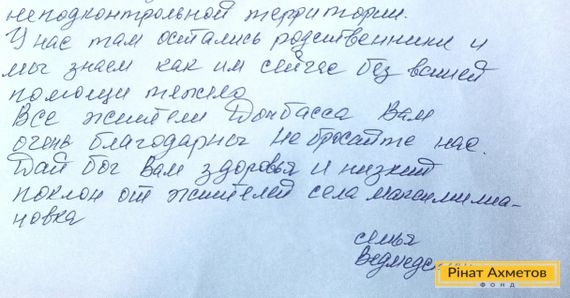 неподконтрольной территории.
У нас там остались родственники и
мы знаем как им сейчас без вашей
помощи тяжело
Все жители Донбасса Вам
очень благодарны не бросайте нас.
Дай бог Вам здоровья и низкий
поклон от жителей села Максимилиа-
новка
семья
Рінат Ахметов
ФОНД